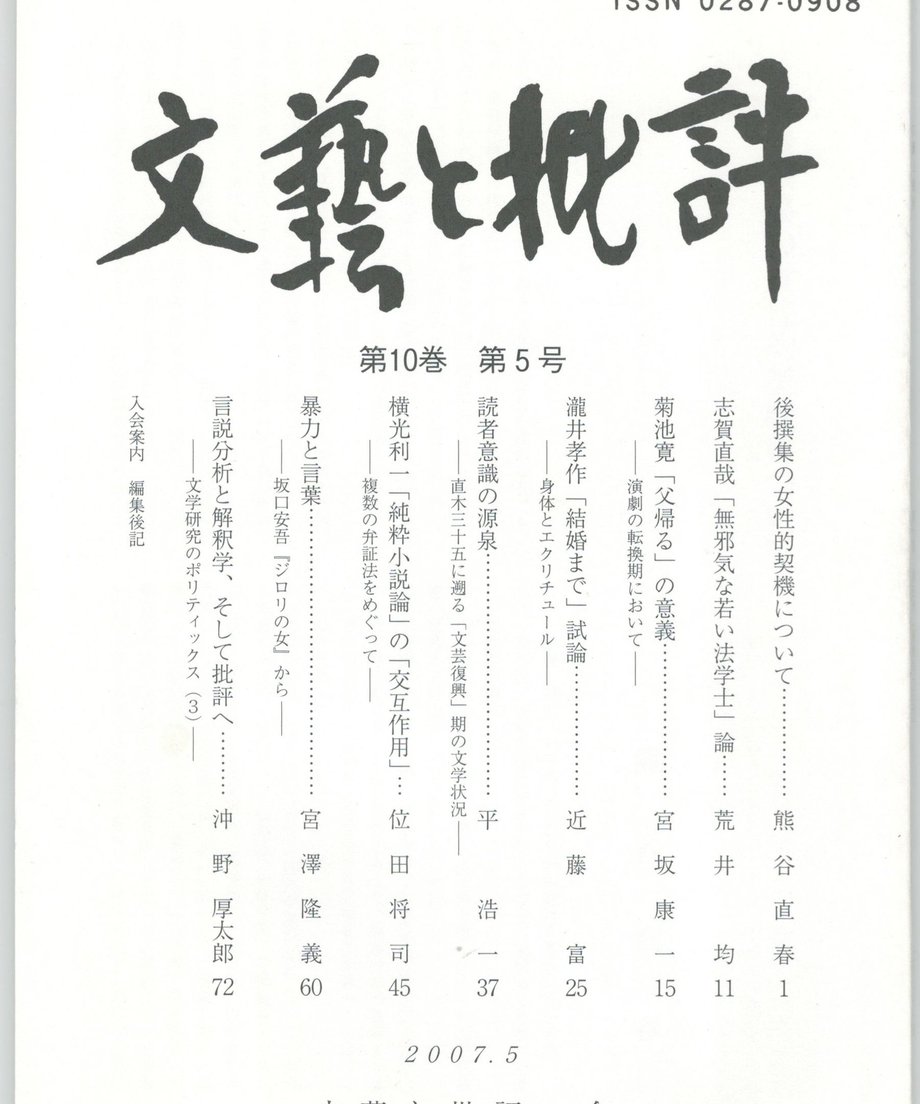 ISSN 0287-0908
文藝と批評
第10巻 第5号
後撰集の女性的契機について……………熊谷直春 1
志賀直哉「無邪気な若い法学士」論……荒井 均 11
菊池寛「父帰る」の意義……………………宮坂康一 15
――演劇の転換期において――
瀧井孝作「結婚まで」試論…………………近藤 富 25
――身体とエクリチュール――
読者意識の源泉………………………………平 浩一 37
――直木三十五に遡る「文芸復興」期の文学状況――
横光利一「純粋小説論」の「交互作用」…位田将司 45
――複数の弁証法をめぐって――
暴力と言葉……………………………………宮澤隆義 60
――坂口安吾『ジロリの女』から――
言説分析と解釈学、そして批評へ………沖野厚太郎 72
――文学研究のポリティックス(3)――
入会案内 編集後記
2007.5